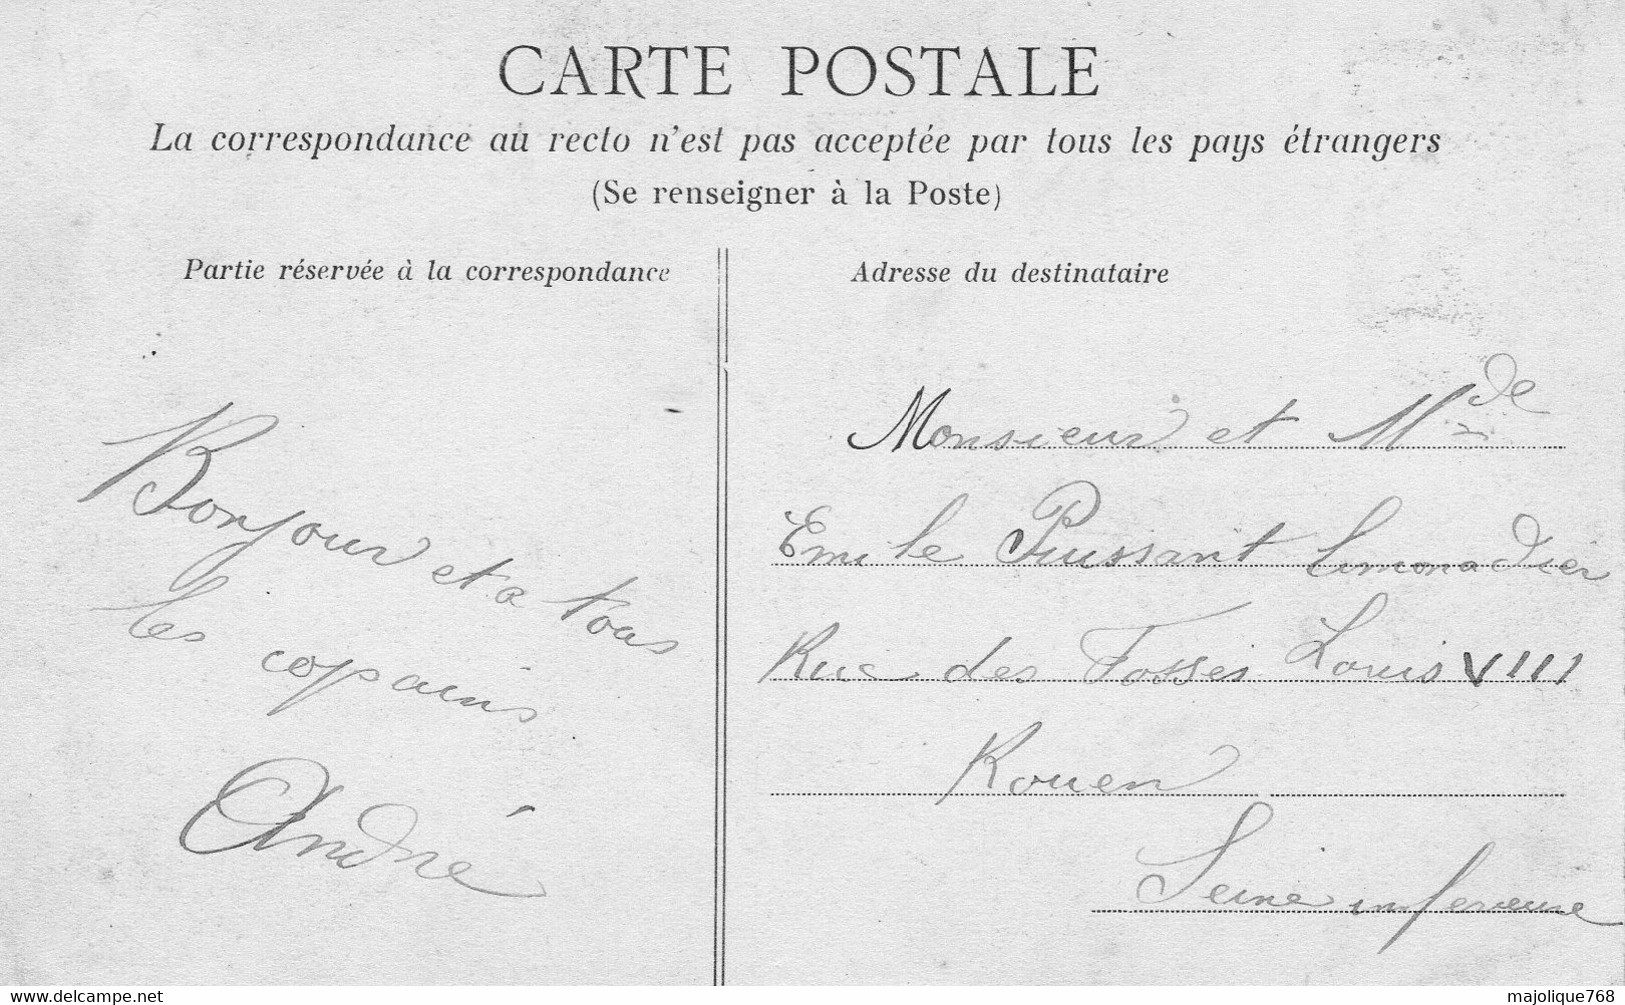 CARTE POSTALE
La correspondance au recto n'est pas acceptée par tous les pays étrangers
(Se renseigner à la Poste)
Partie réservée à la correspondance
Bonjour et a tous
les copains
André
Adresse du destinataire
Monsieur et Mde
Emile Puissant limonadier
Rue des Fossés Louis VIII
Rouen
Seine inferieure
www.delcampe.net
majolique768